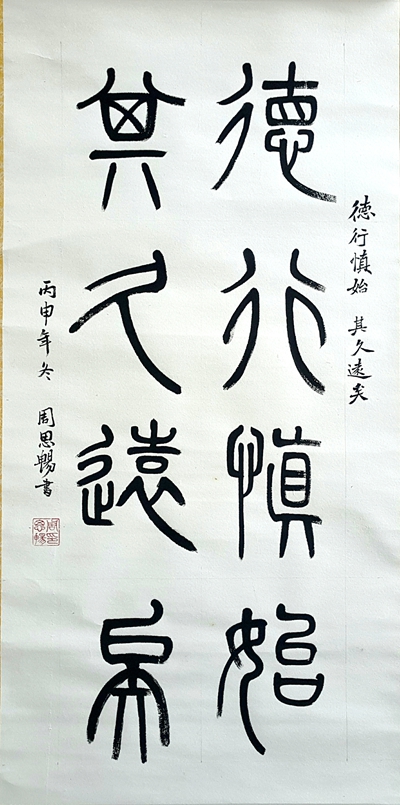 德行慎始 其久遠矣
德行慎始
其久遠矣
丙申年冬 周思暢書
周思暢印